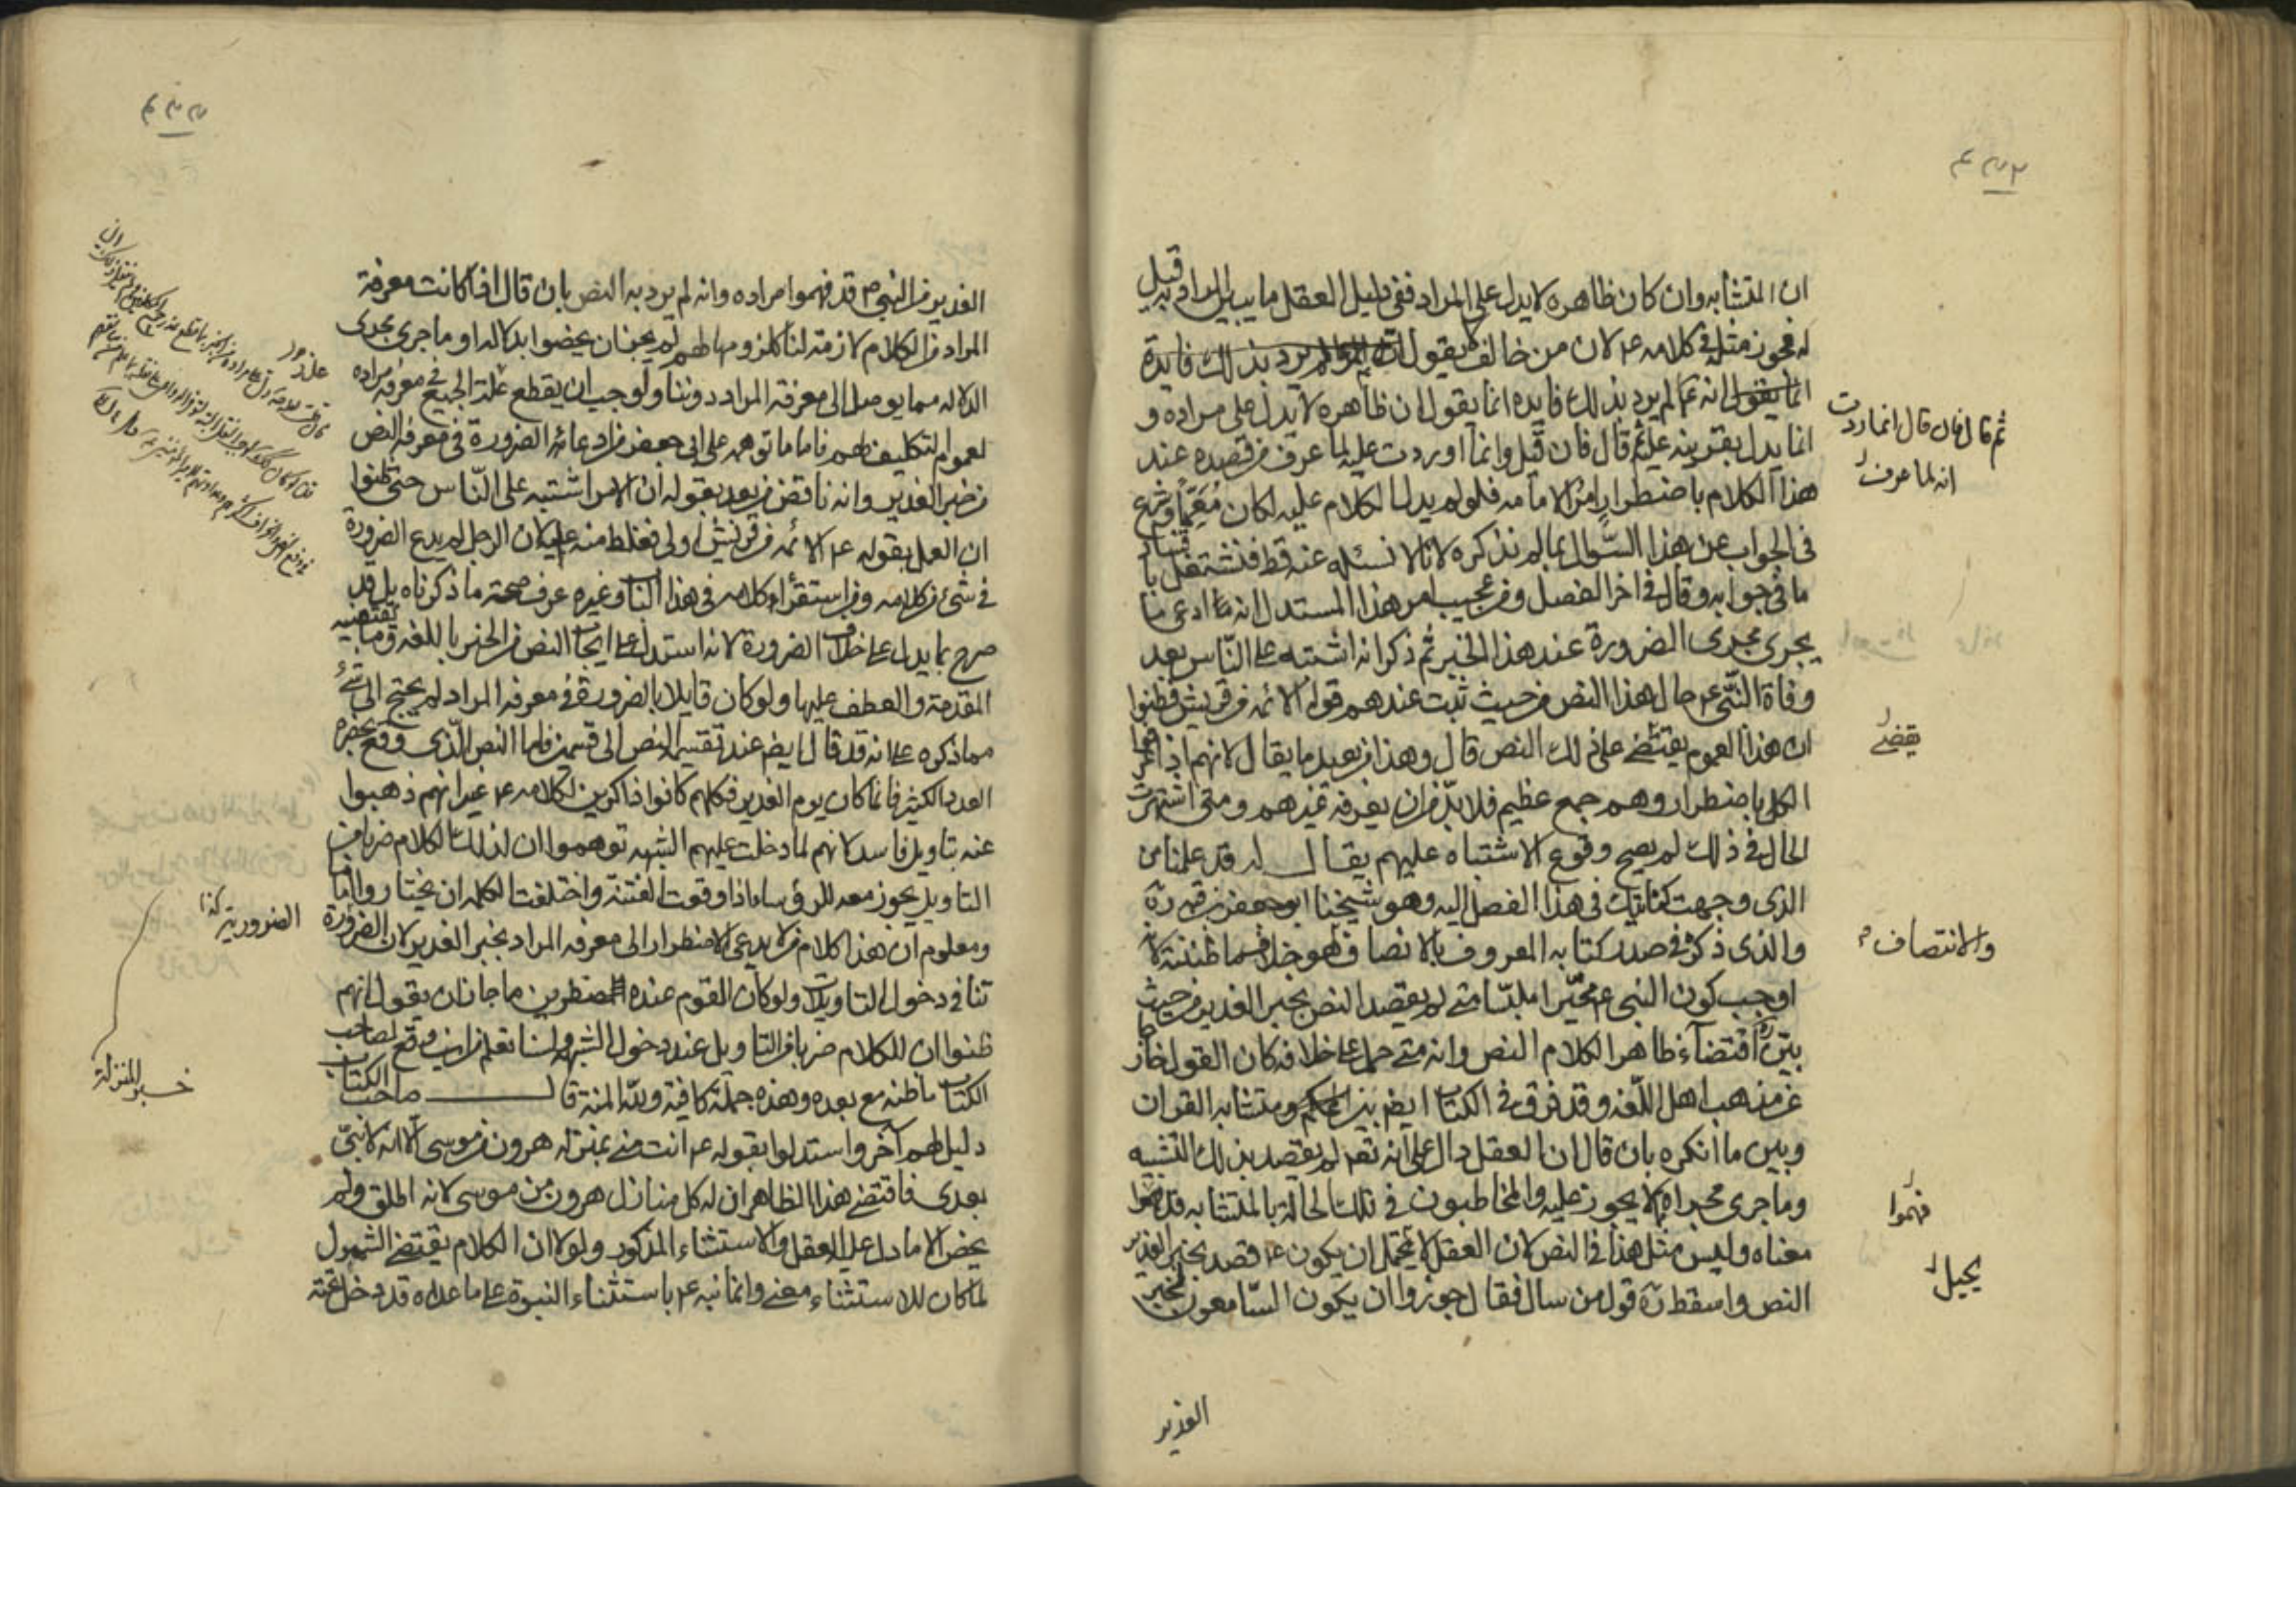 ان المتشابه وان كان ظاهره لا يدل على المراد ففي دليل العقل ما يبين المراد به قيل
له فجوز مثله في كلامه ع لان من خالفك يقول لم يرد بذلك فايدة
انما يقول انه ع لم يرد بذلك فايده انما يقول ان ظاهره لا يدل على مراده و
انما يدل بقرينه علم ثم قال فان قيل وانما اوردت عليه لما عرف من قصده عند
هذا الكلام باضطرار امر الامامه فلو لم يدل الكلام عليه لكان معميا وشرع
في الجواب عن هذا السؤال بما لم نذكره لانا لا نسئله عنه قط فنشتغل با
ما في جوابه وقال في اخر الفصل ومن عجيب امر هذا المستدل انه ادعى ما
يجرى مجرى الضرورة عند هذا الخبر ثم ذكر انه اشتبه على الناس بعد
وفاة النبي ع حال هذا النص من حيث ثبت عندهم قوله الائمه من قريش فظنوا
ان هذا العموم يقتضى على ذلك النص قال وهذا من بعيد ما يقال لانهم اذا
الكل باضطرار وهم جمع عظيم فلا بد من ان يعرفه غيرهم ومتى اشتهرت
الحال في ذلك لم يصح وقوع الاشتباه عليهم يقال له قد علمنا من
الذى وجهت كنايتك في هذا الفصل اليه وهو شيخنا ابو جعفر بن قبه ره
والذى ذكره في صدر كتابه المعروف بالانصاف هو خلاف ما ظننته لانه
اوجب كون النبي ع محيرا ملبسا متى لم يقصد النص بخبر الغدير من حيث
بين اقتضاء ظاهر الكلام النص وانه متى حمل على خلافه كان القول خارجا
عن مذهب اهل اللغه وقد فرق في الكتاب ايضا بين الحكم ومتشابه القران
وبين ما انكره بان قال ان العقل دال على انه تعم لم يقصد بذلك التشبيه
وما جرى مجراه مما لا يجوز عليه والمخاطبون في تلك الحالة بالمتشابه قد فهموا
معناه وليس مثل هذا في النص لان العقل لا يحتمل ان يكون ع قصد بخبر الغدير
النص واسقط ره قول من سال فقال جوزوا ان يكون السامعون لخبر
ثم قال فان قال انما اردت
انه لما عرف
يقضى
والانتصاف
فهموا
يحيل
الغدير
الغدير من النبي ص قد فهموا مراده وانه لم يرد به النص بان قال اذا كانت معرفة
المراد من الكلام لازمة لنا كلزومها لهم لم يجز ان يخصوا بدلاله او ما جرى مجرى
الدلاله مما يوصل الى معرفة المراد دوننا ولوجب ان يقطع عذر الجميع في معرفه مراده
لعموم التكليف لهم فاما ما توهمه على ابي جعفر من ادعائه الضرورة في معرفه النص
من خبر الغدير وانه ناقض من بعد بقوله ان الامر اشتبه على الناس حتى ظنوا
ان العمل بقوله ع الائمه من قريش اولى فغلط منه عليه لان الرجل لم يدع الضرورة
في شئ من كلامه ومن استقرأ كلامه في هذا الباب وغيره عرف صحة ما ذكرناه بل قد
صرح بما يدل على خلاف الضرورة لانه استدل على ايجاب النص من الخبر باللغه وما يقتضيه
المقدمة والعطف عليها ولو كان قايلا بالضرورة في معرفه المراد لم يحتج الى شئ
مما ذكره على انه قد قال ايضا عند تقسيم النص الى قسمين فاما النص الذى وقع بحضرة
العدد الكثير فانما كان يوم الغدير فكلهم كانوا ذاكرين لكلامه ع غير انهم ذهبوا
عنه بتاويل فاسد لانهم لما دخلت عليهم الشبهه توهموا ان لذلك الكلام ضربا من
التاويل يجوز معه للرؤساء اذا وقعت الفتنة واختلفت الكلمه ان يختاروا اماما
ومعلوم ان هذا كلام من لا يدعى الاضطرار الى معرفه المراد بخبر الغدير لان الضرورة
تنافي دخول التاويلات ولو كان القوم عنده مضطرين ما جاز ان يقول انهم
ظنوا ان للكلام ضربا من التاويل عند دخول الشبهه ولسنا نعلم من اين وقع لصاحب
الكتاب ما ظنه مع بعده وهذه جملة كافية ولله المنة قال صاحب الكتاب
دليل لهم اخر واستدلوا بقوله ع انت منى بمنزله هرون من موسى الا انه لا نبي
بعدى فاقتضى هذا الظاهر ان له كل منازل هرون من موسى لانه اطلق ولم
يخص الا ما دل عليه العقل والاستثناء المذكور ولولا ان الكلام يقتضى الشمول
لما كان للاستثناء معنى وانما نبه ع باستثناء النبوة على ما عداه قد دخل تحته
الضرورية كذا
خبر المنزلة